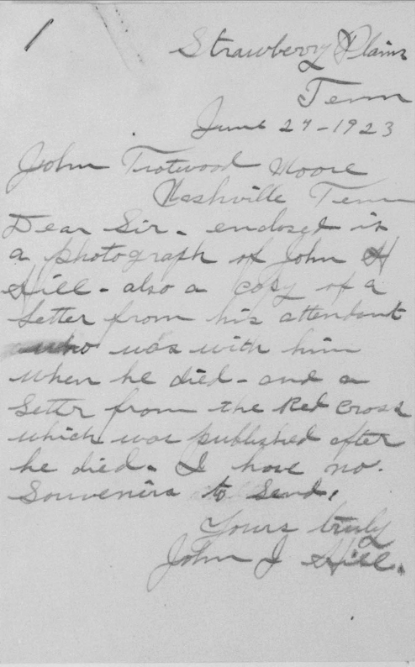 1
Strawberry Plains
Tenn
June 27-1923
John Trotwood Moore
Nashville Tenn
Dear Sir - enclosed is
a photograph of John H
Hill - also a copy of a
letter from his attendant
who was with him
when he died - and a
letter from the Red Cross
which was published after
he died. I have no
souvenirs to send.
Yours truly
John J Hill.